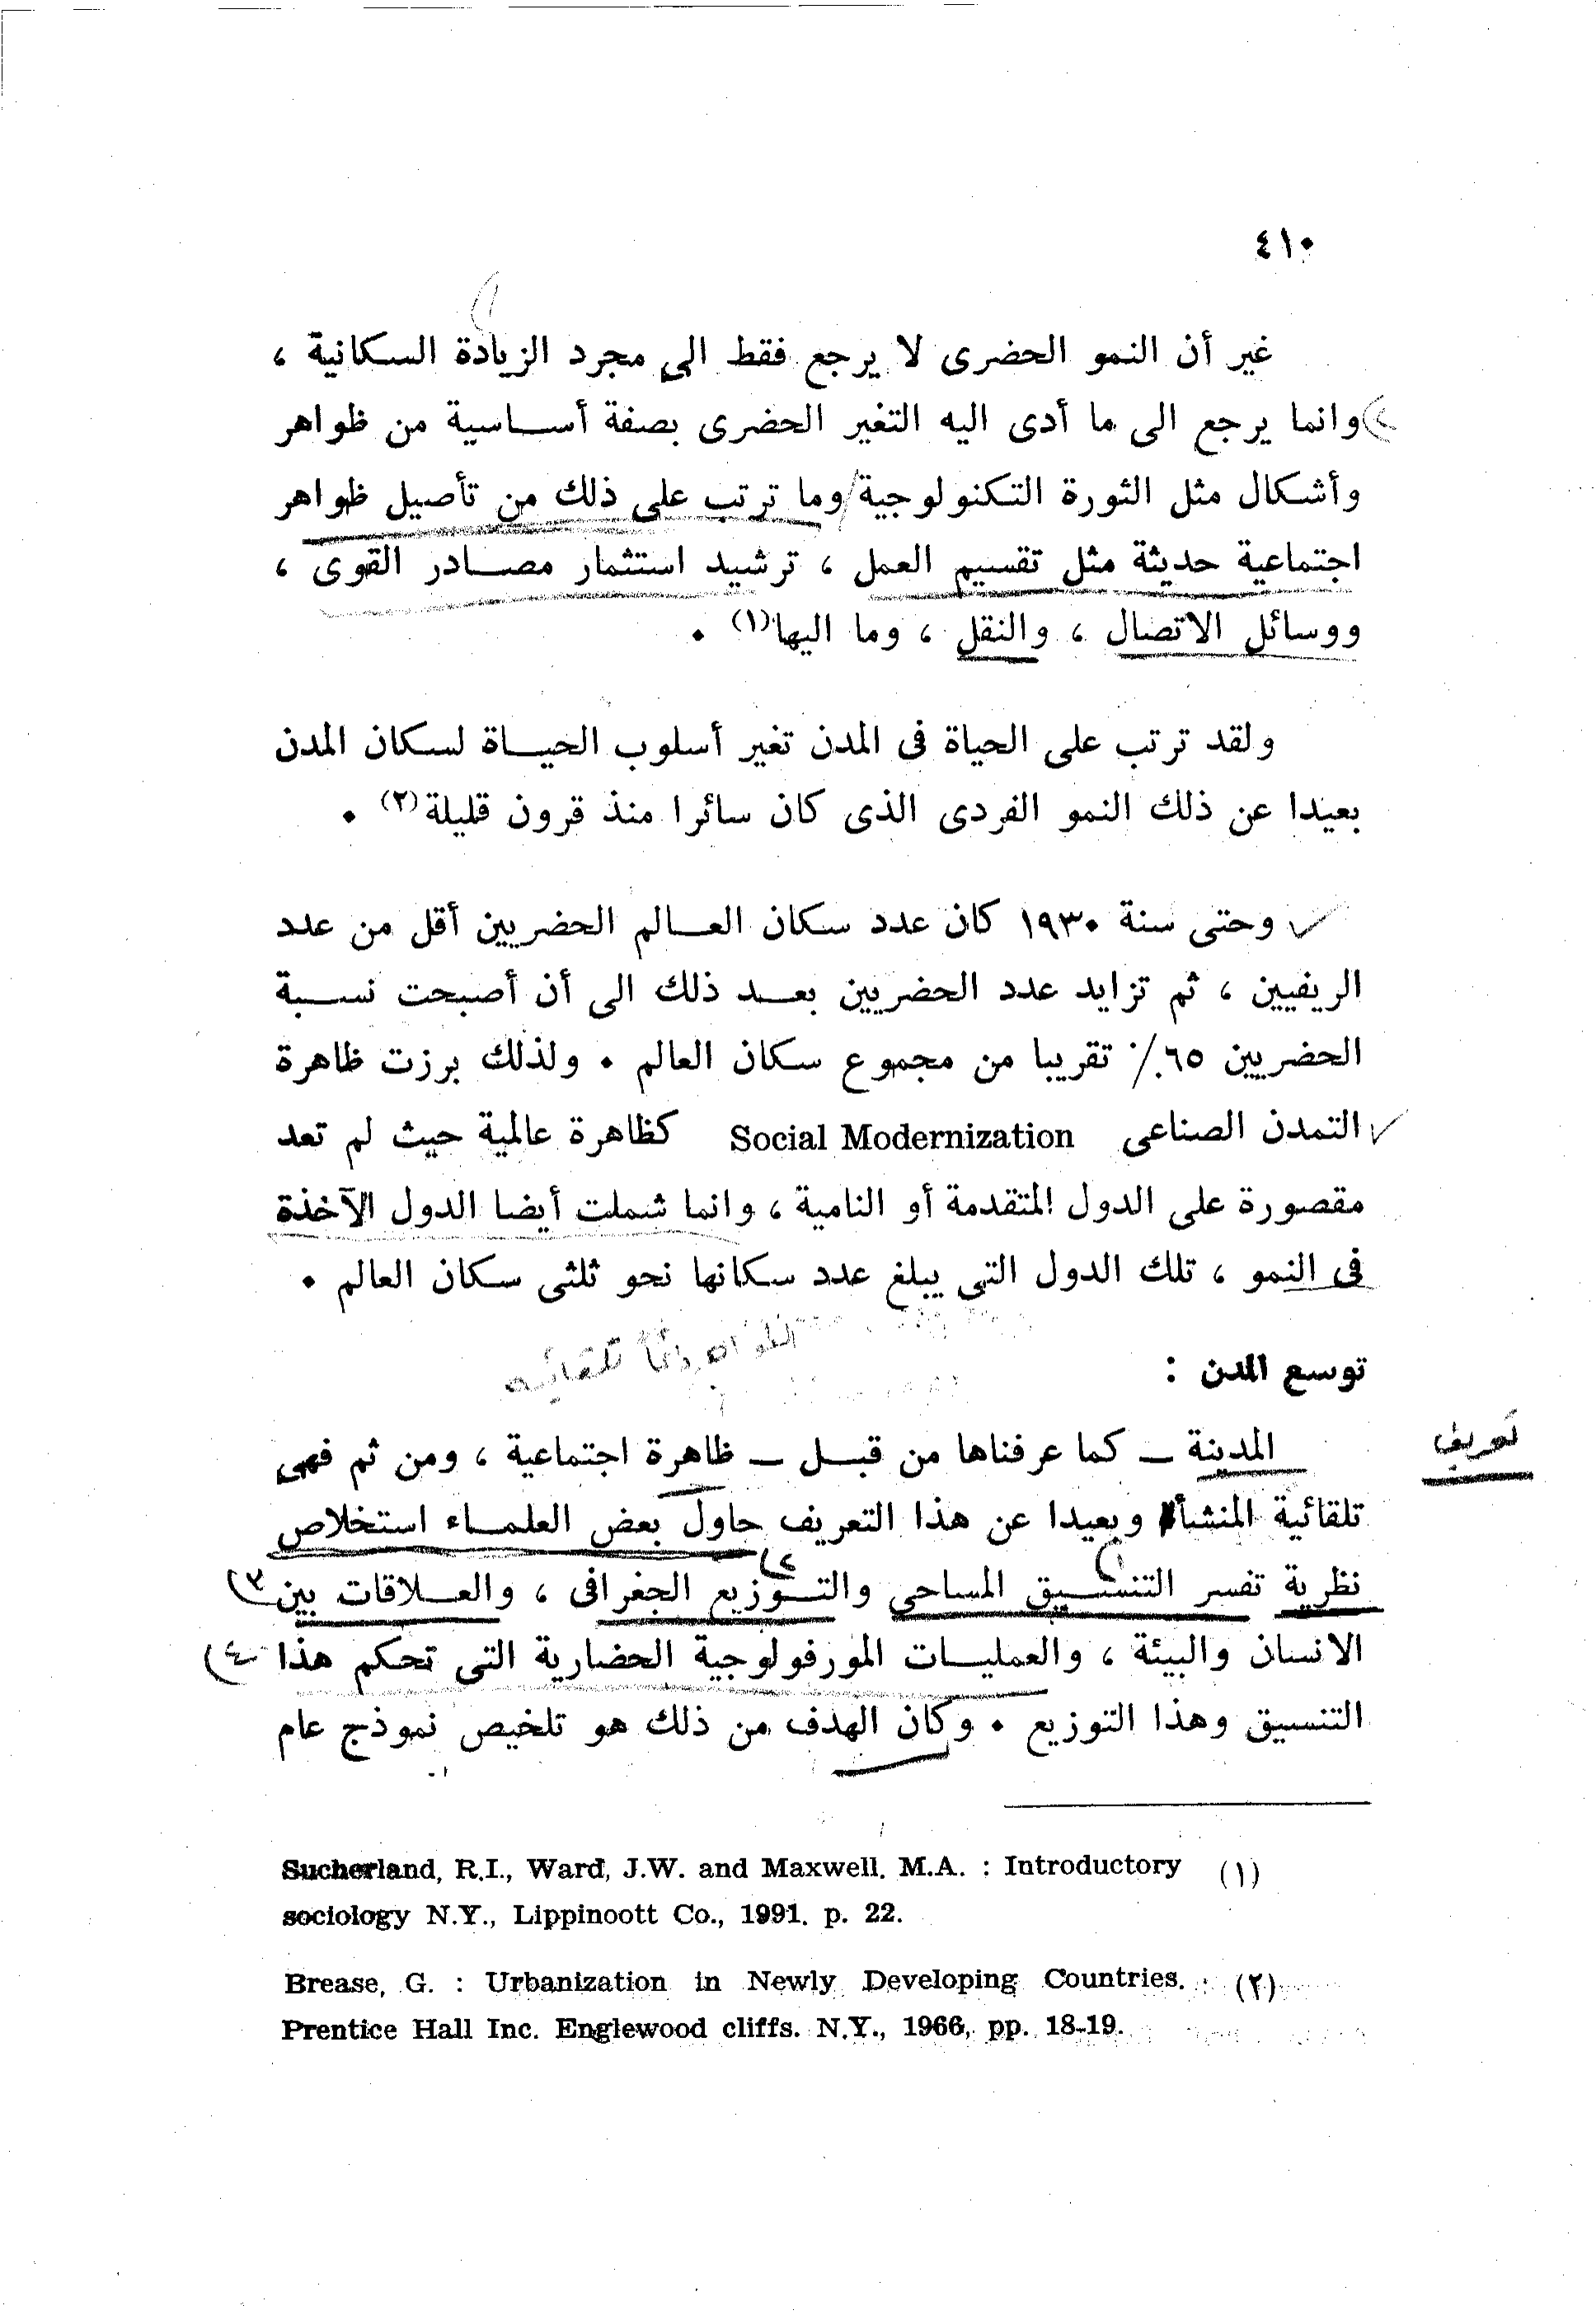 ٤١٠
غير أن النمو الحضرى لا يرجع فقط الى مجرد الزيادة السكانية ،
وانما يرجع الى ما أدى اليه التغير الحضرى بصفة أساسية من ظواهر
وأشكال مثل الثورة التكنولوجية وما ترتب على ذلك من تأصيل ظواهر
اجتماعية حديثة مثل تقسيم العمل ، ترشيد استثمار مصادر القوى ،
ووسائل الاتصال ، والنقل ، وما اليها(١) ٠
ولقد ترتب على الحياة فى المدن تغير أسلوب الحياة لسكان المدن
بعيدا عن ذلك النمو الفردى الذى كان سائرا منذ قرون قليلة(٢) ٠
وحتى سنة ١٩٣٠ كان عدد سكان العالم الحضريين أقل من عدد
الريفيين ، ثم تزايد عدد الحضريين بعد ذلك الى أن أصبحت نسبة
الحضريين ٦٥٪ تقريبا من مجموع سكان العالم ٠ ولذلك برزت ظاهرة
التمدن الصناعى Social Modernization كظاهرة عالمية حيث لم تعد
مقصورة على الدول المتقدمة أو النامية ، وانما شملت أيضا الدول الآخذة
فى النمو ، تلك الدول التى يبلغ عدد سكانها نحو ثلثى سكان العالم ٠
تلقائيه
توسع المدن :
تعريف
المدينة ــ كما عرفناها من قبل ــ ظاهرة اجتماعية ، ومن ثم فهى
تلقائية المنشأ وبعيدا عن هذا التعريف حاول بعض العلماء استخلاص
نظرية تفسر التنسيق المساحى والتوزيع الجغرافى ، والعلاقات بين ٣)
الانسان والبيئة ، والعمليات المورفولوجية الحضارية التى تحكم هذا ٤)
التنسيق وهذا التوزيع ٠ وكان الهدف من ذلك هو تلخيص نموذج عام
(١) Sucherland, R.I., Ward, J.W. and Maxwell. M.A. : Introductory
sociology N.Y., Lippinoott Co., 1991. p. 22.
(٢) Brease, G. : Urbanization in Newly Developing Countries.
Prentice Hall Inc. Englewood cliffs. N.Y., 1966, pp. 18-19.